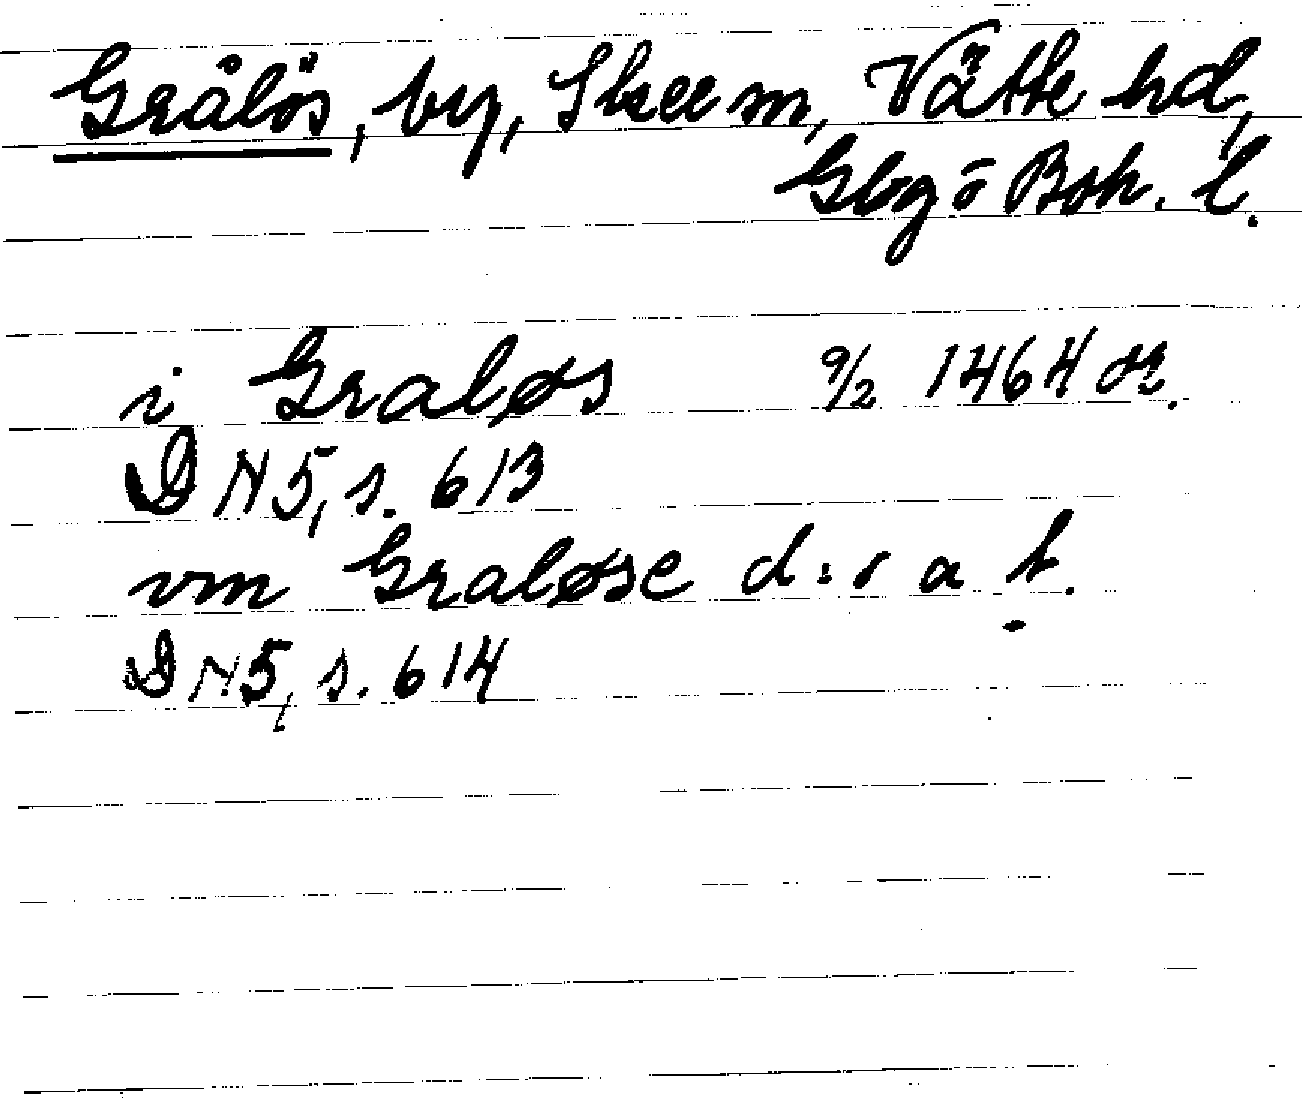 Grålös, by, Skee sn, Vätte hd,
Gbg o Boh. l.
i Graløs 9/2 1464 or.
DN 5, s. 613
vm Graløse d:o a st.
DN 5, s. 614